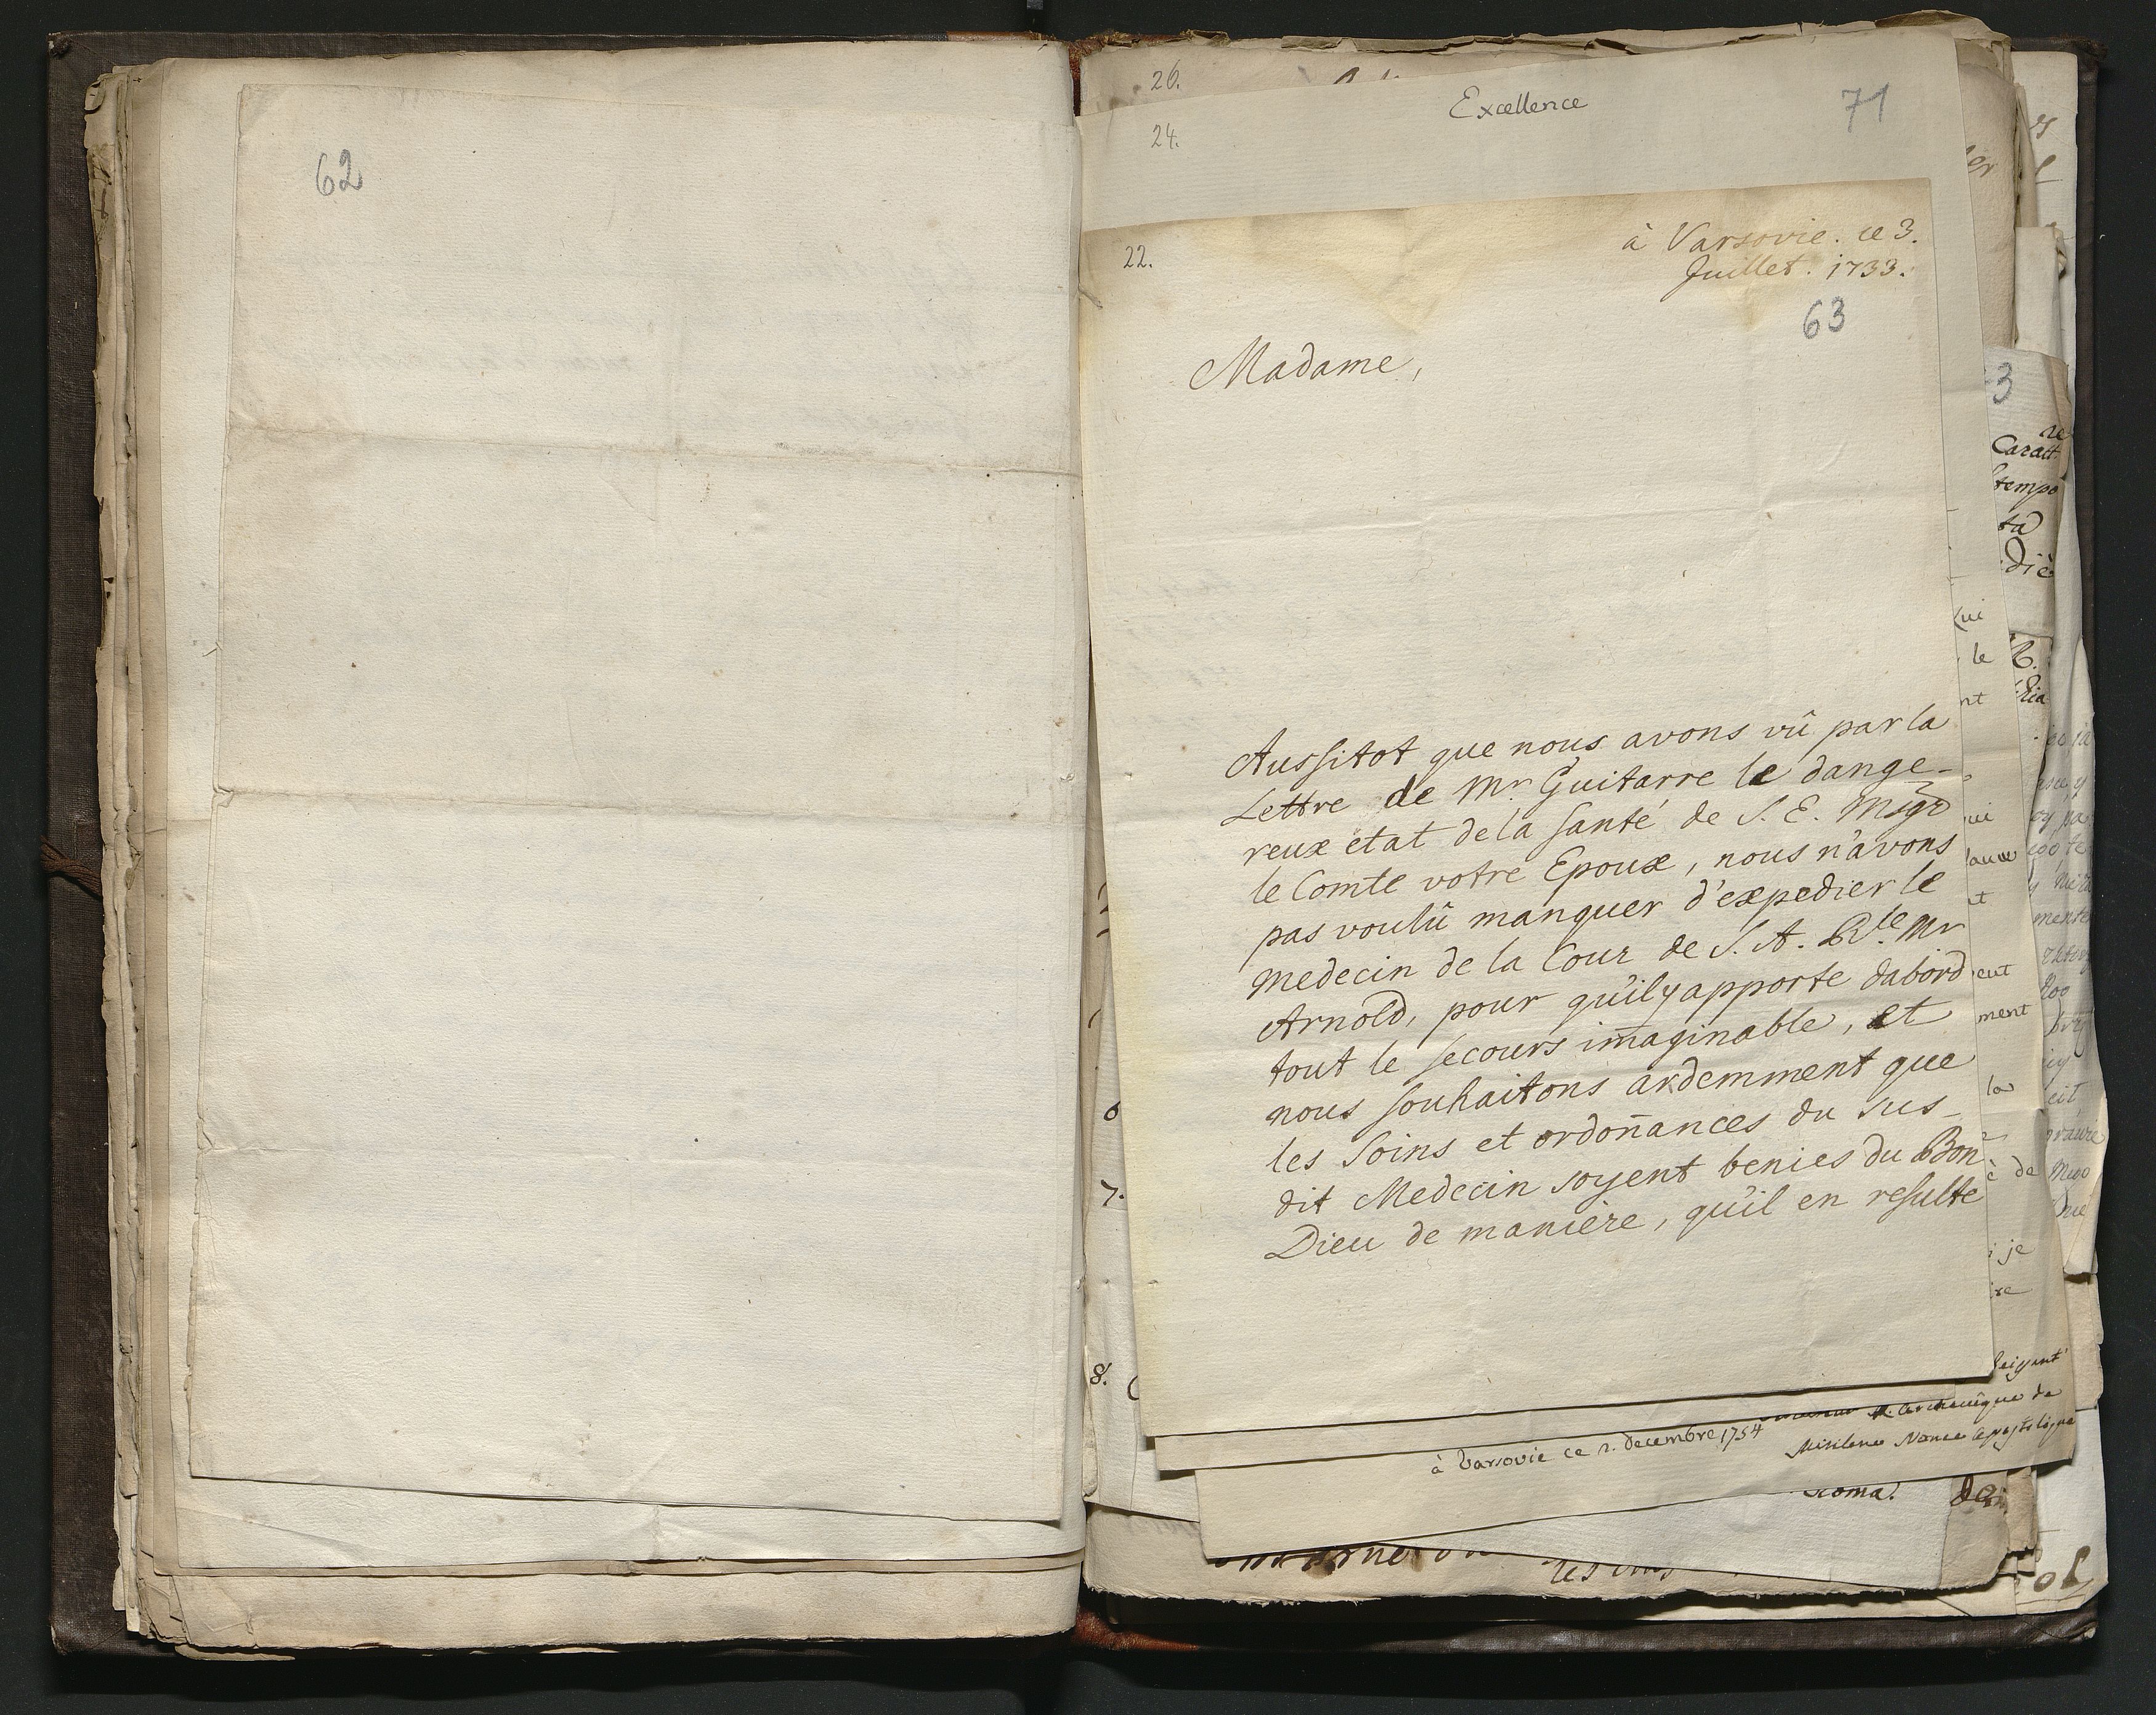 62
26.
Excellence
71
24.
22.
à Varsovie. ce 3.
Juillet. 1733.
63
Madame,
Aussitot que nous avons vû par la
Lettre de Mr Guitarre le dange-
reux etat de la santé de S. E. Msgr
le Comte votre Epoux, nous n'avons
pas voulû manquer d'expedier le
Medecin de la Cour de S. A. Rle. Mr
Arnold, pour qu'il y apporte dabord
tout le secours im̄aginable, et
nous souhaitons ardemment que
les Soins et ordon̄ances du sus-
dit Medecin soyent benies du Bon
Dieu de manière, qu'il en resulte
3
Caratt
tempo
ta
die
ui
le
nt
ut
ment
la
è de
je
re
7.
8.
Archevêque de
à Varsovie ce 2. decembre 1754
Nonce Apostolique
Roma.